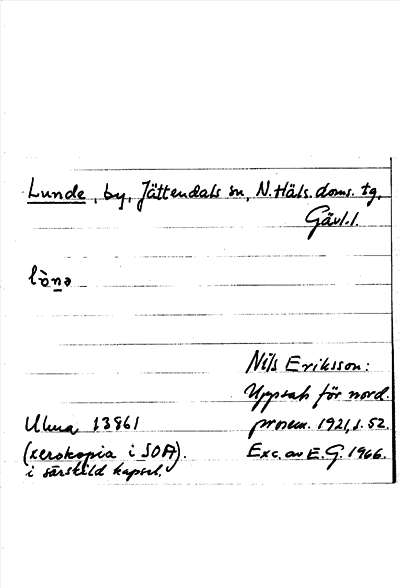 Lunde, by, Jättendals sn, N. Häls. doms. tg.
Gävl. l.
lònə
Nils Eriksson:
Uppsats för nord.
prosem. 1921, s. 52.
Exc. av E. G. 1966.
Ulma 13861
(xerokopia i SOA).
i särskild kapsel.